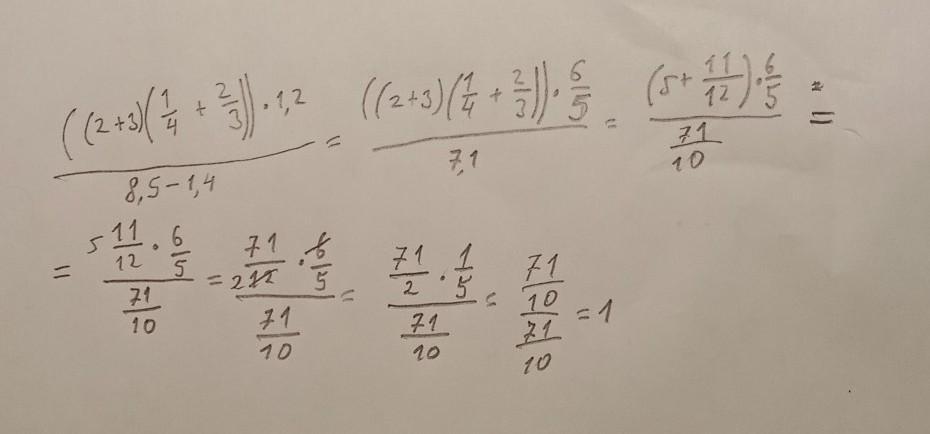 ((2+3)(1/4 + 2/3))·1,2 / 8,5-1,4 = ((2+3)(1/4 + 2/3))·6/5 / 7,1 = (5 + 11/12)·6/5 / 71/10 =
= 5 11/12 · 6/5 / 71/10 = 71/2 12 · 6/5 / 71/10 = 71/2 · 1/5 / 71/10 = 71/10 / 71/10 = 1